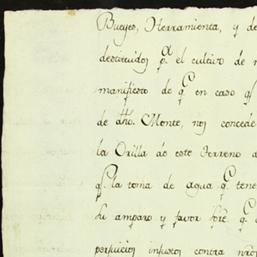 Bueyes, Herramienta, y de
destruidos pa. el cultivo de n
manifiesto de qe. en caso qe.
de dho. Monte, nos concede
la Orilla de este terreno a
pa. la toma de agua qe. tene
su amparo y favor sobre. qe.
perjuicios injustos contra nros